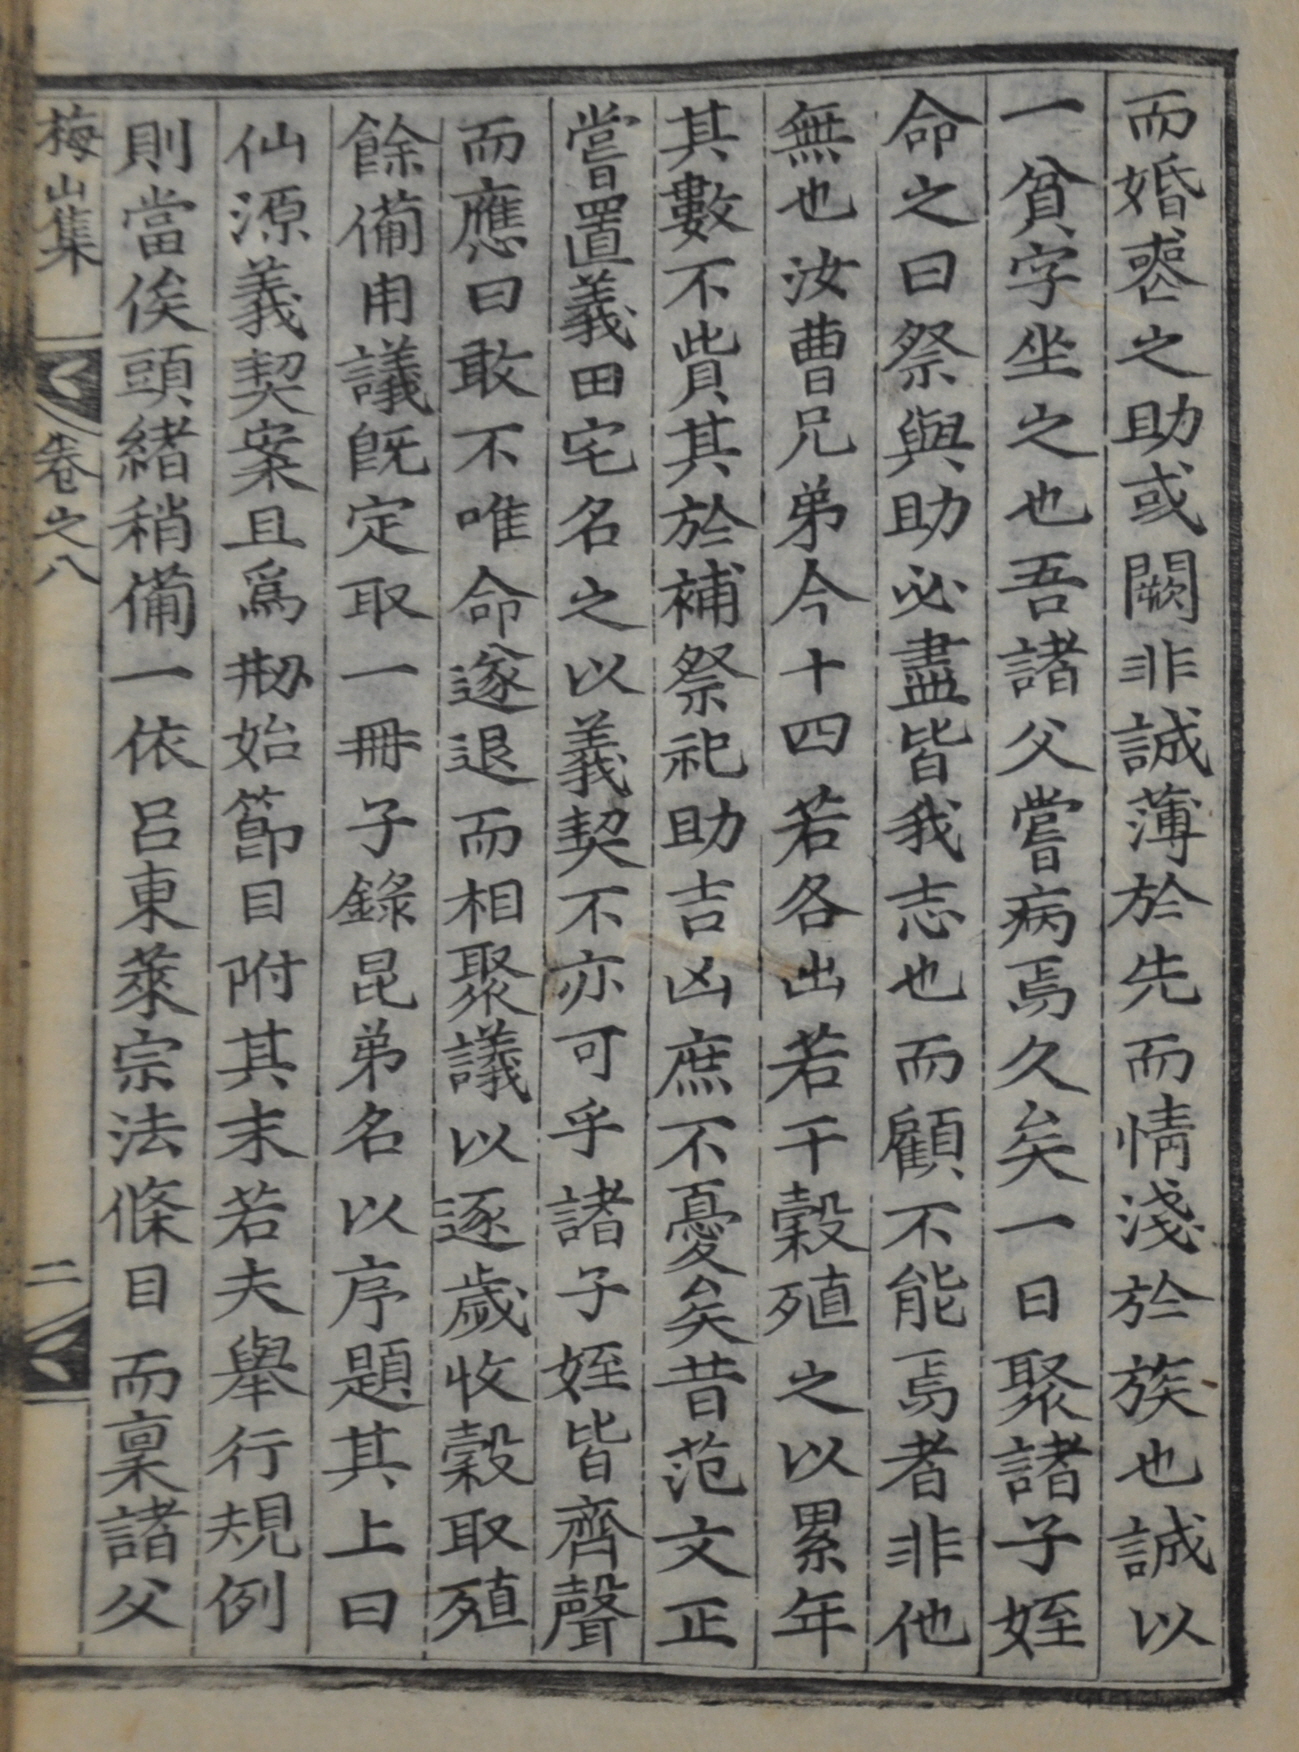 而婚喪之助或闕非誠薄於先而情淺於族也誠以
一貧字坐之也吾諸父嘗病焉久矣一日聚諸子姪
命之曰祭與助必盡皆我志也而顧不能焉者非他
無也汝曹兄弟今十四若各出若干穀殖之以累年
其數不貲其於補祭祀助吉凶庶不憂矣昔范文正
嘗置義田宅名之以義契不亦可乎諸子姪皆齊聲
而應曰敢不唯命遂退而相聚議以逐歲收穀取殖
餘備用議旣定取一冊子錄昆弟名以序題其上曰
仙源義契案且爲刱始節目附其末若夫舉行規例
則當俟頭緖稍備一依呂東萊宗法條目而稟諸父
梅山集 卷之八 二